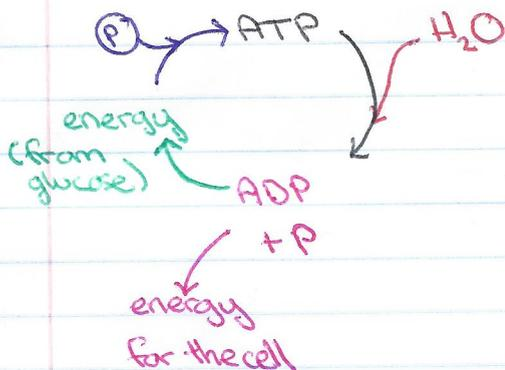 P ATP H₂O
energy
(from
glucose)
ADP
+ P
energy
for the cell